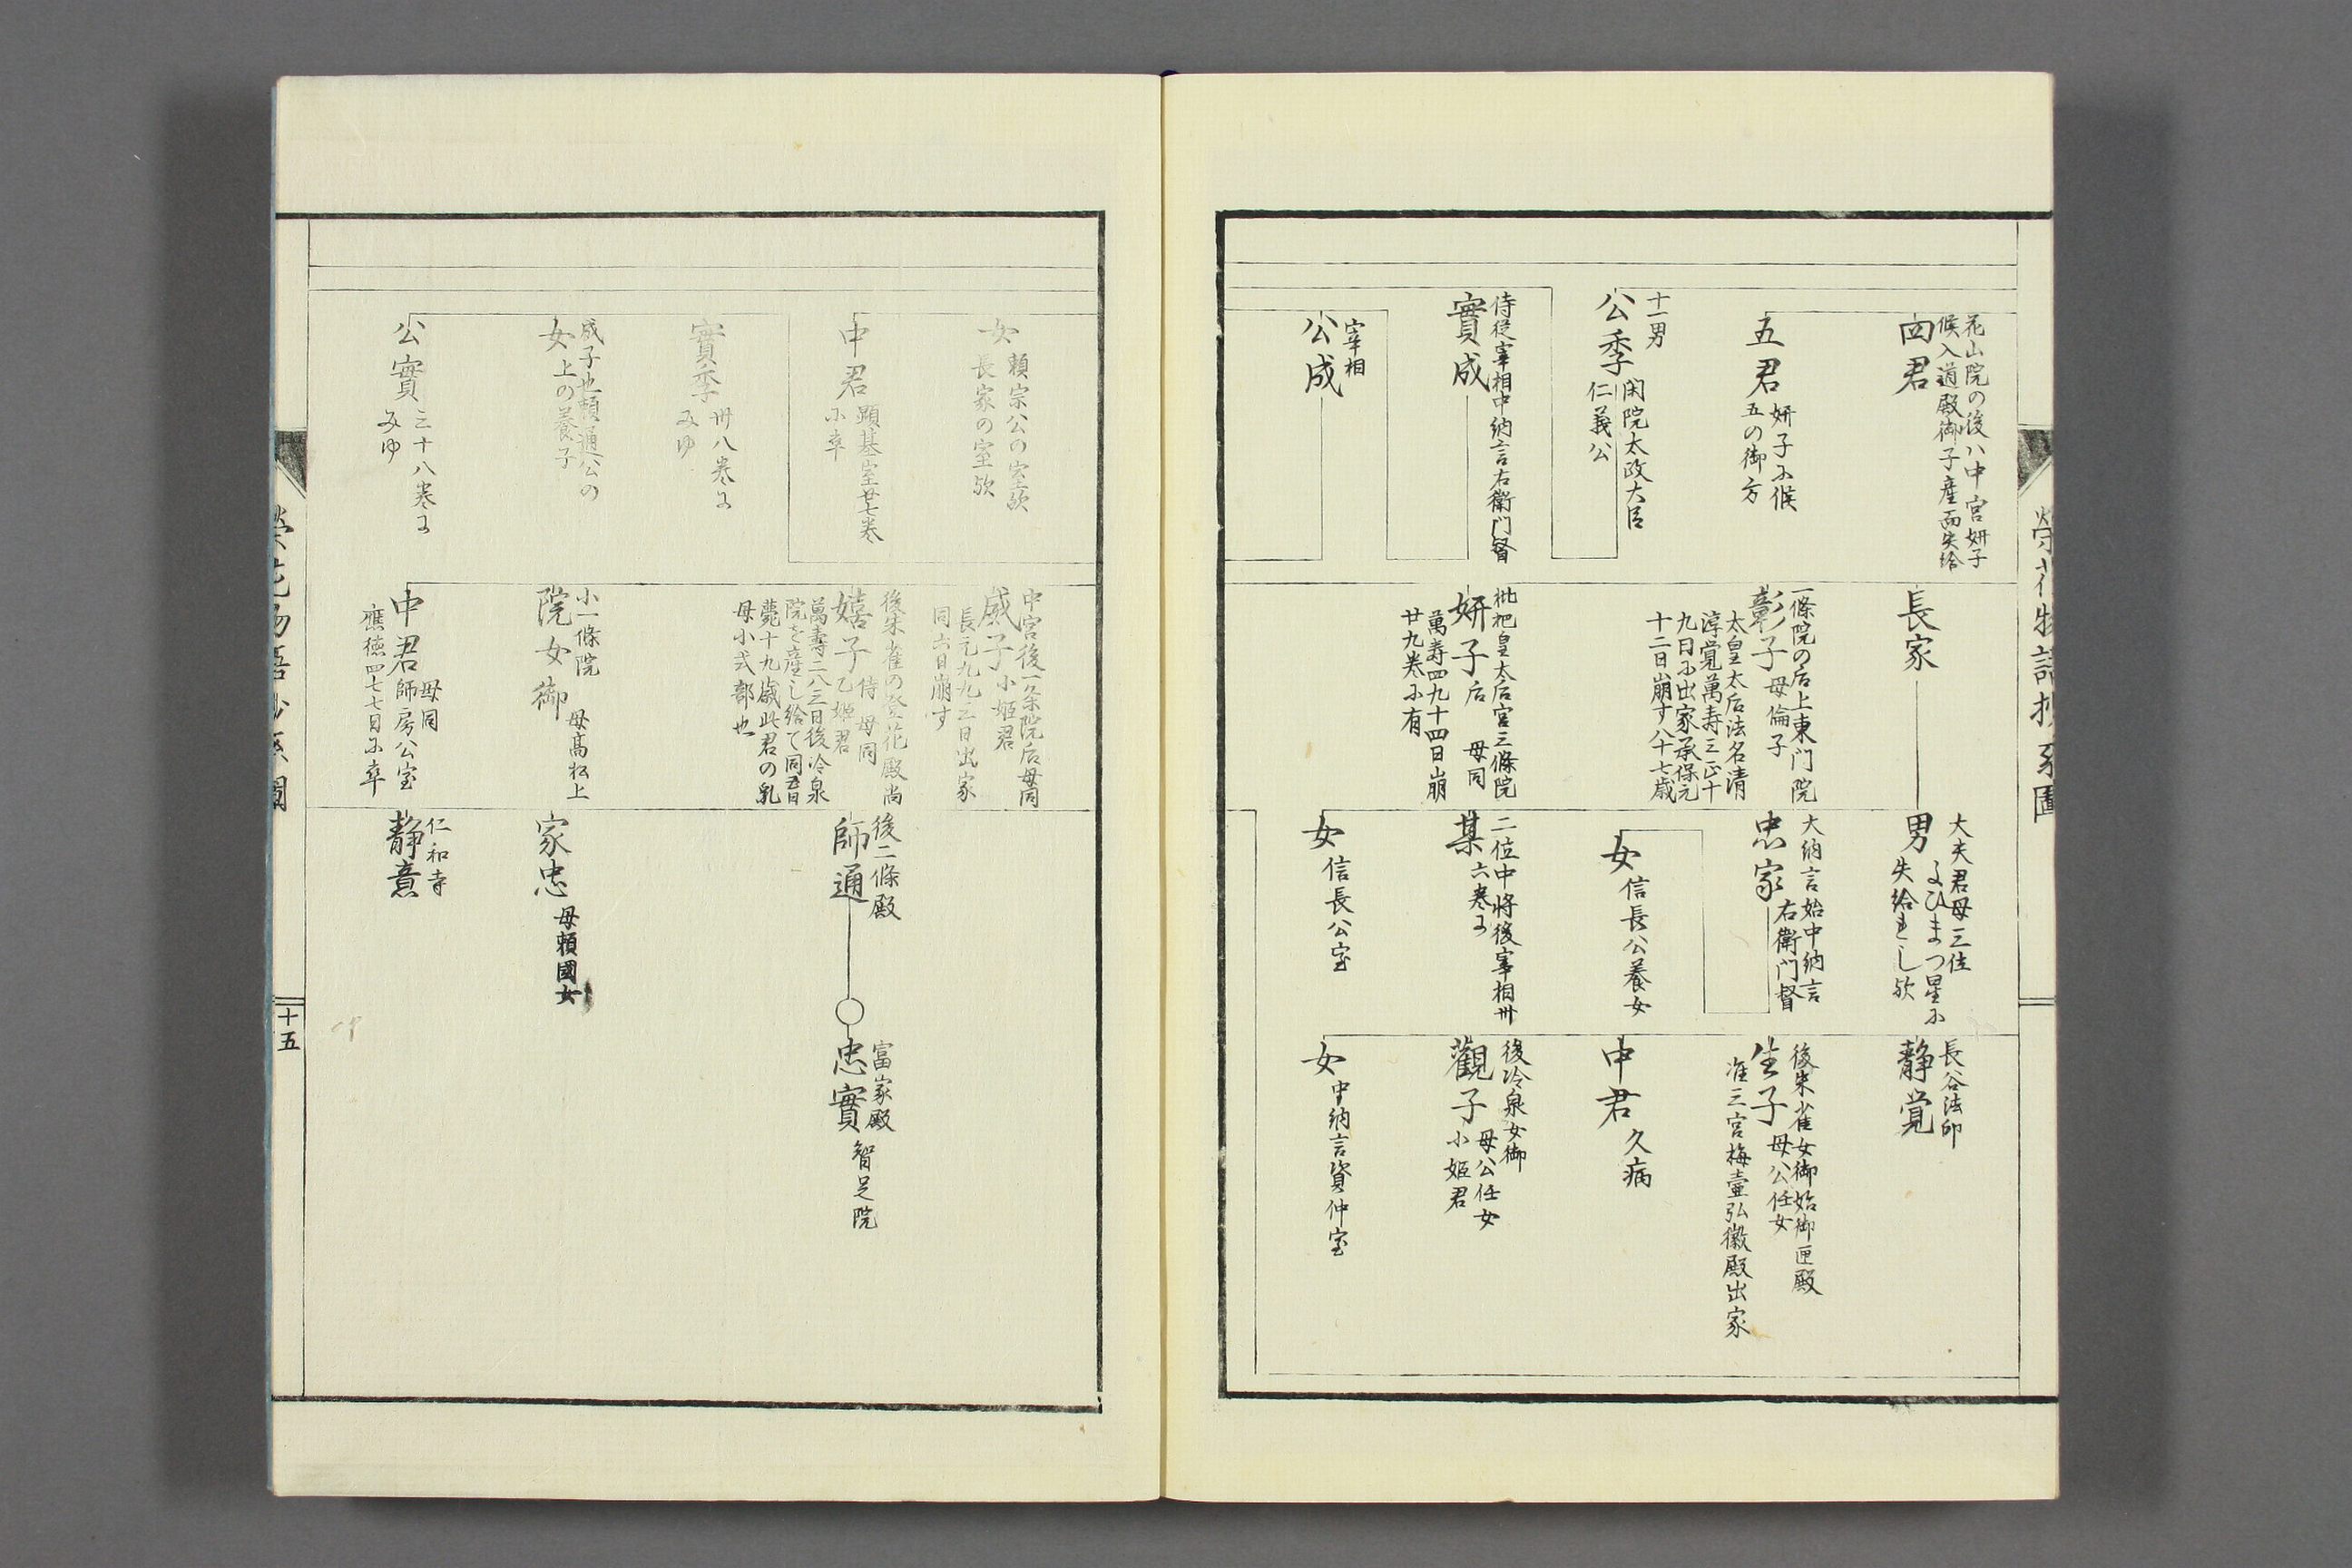 花山院の後ハ中宮妍子
候入道殿御子産而失給
四君
五君
妍子に候
五の御方
十一男
公季
閑院太政大臣
仁義公
侍従宰相中納言右衛門督
實成
宰相
公成
長家
一條院の后上東门院
彰子
母倫子
太皇太后法名清
淨覚萬寿三正十
九日に出家承保元
十二日崩す八十七歳
枇杷皇太后宮三條院
妍子
后 母同
萬寿四九十四日崩
廿九巻に有
大夫君母三位
よひまつ星に
失給
男
大納言始中納言
右衛門督
忠家
女
信長公養女
二位中将後宰相卅
六巻に
某
女
信長公室
長谷法印
静覚
後朱雀女御始御匣殿
生子
母公任女
准三宮梅壷弘徽殿出家
中君
久病
後冷泉女御
觀子
母公任女
小姫君
女
中納言資仲室
女
頼宗公の室歟
長家の室歟
中君
顕基室廿七巻
に卒
實季
卅八巻に
みゆ
成子也頼通公の
女
上の養子
公實
三十八巻に
みゆ
中宮後一条院后母同
威子
小姫君
長元九九三日出家
同六日崩す
後朱雀の登花殿尚
嬉子
侍 母同
乙姫君
萬壽二八三日後冷泉
院を産し給て同五日
薨十九歳此君の乳
母小式部也
小一條院
院女御
母高松上
中君
母同
師房公室
應徳四七七日に卒
後二條殿
師通
家忠
母頼國女
仁和寺
静意
富家殿
忠實
智足院
十五